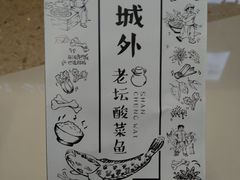 城外
老坛酸菜鱼
SHAN
CHENG WAI